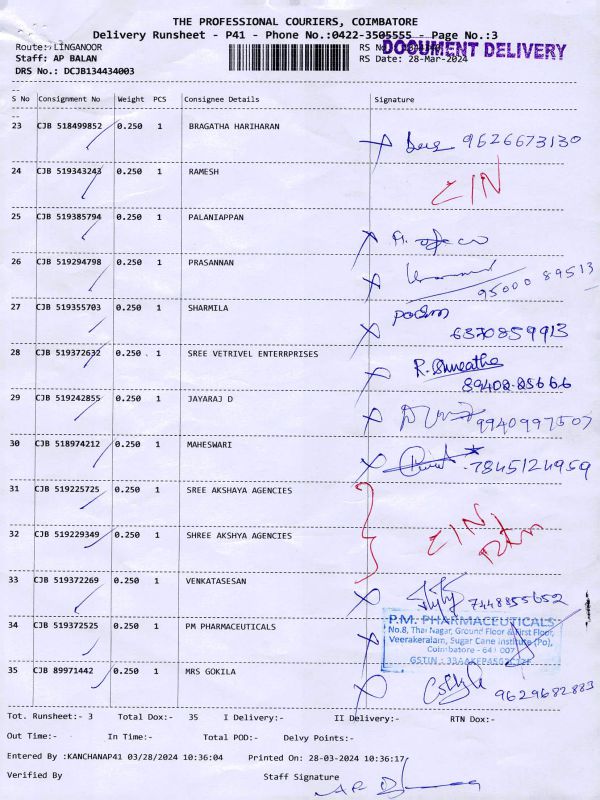 THE PROFESSIONAL COURIERS, COIMBATORE
Delivery Runsheet - P41 - Phone No.:0422-3505555 - Page No.:3
Route: LINGANOOR RS No DOCUMENT DELIVERY
Staff: AP BALAN RS Date: 28-Mar-2024
DRS No.: DCJB134434003
S No Consignment No Weight PCS Consignee Details Signature
23 CJB 518499852 0.250 1 BRAGATHA HARIHARAN 9626673130
24 CJB 519343243 0.250 1 RAMESH CIN
25 CJB 519385794 0.250 1 PALANIAPPAN
26 CJB 519294798 0.250 1 PRASANNAN 95000 89513
27 CJB 519355703 0.250 1 SHARMILA 6370859913
28 CJB 519372632 0.250 1 SREE VETRIVEL ENTERRPRISES 89408-85666
29 CJB 519242855 0.250 1 JAYARAJ D 9940997507
30 CJB 518974212 0.250 1 MAHESWARI 7845124959
31 CJB 519225725 0.250 1 SREE AKSHAYA AGENCIES CIN
32 CJB 519229349 0.250 1 SHREE AKSHYA AGENCIES
33 CJB 519372269 0.250 1 VENKATASESAN 7448855652
34 CJB 519372525 0.250 1 PM PHARMACEUTICALS
P.M. PHARMACEUTICALS
No.8, Thai Nagar, Ground Floor & First Floor,
Veerakeralam, Sugar Cane Institute (Po),
Coimbatore - 641 007
GSTIN :
35 CJB 89971442 0.250 1 MRS GOKILA 9629682883
Tot. Runsheet:- 3 Total Dox:- 35 I Delivery:- II Delivery:- RTN Dox:-
Out Time:- In Time:- Total POD:- Delvy Points:-
Entered By :KANCHANAP41 03/28/2024 10:36:04 Printed On: 28-03-2024 10:36:17
Verified By Staff Signature